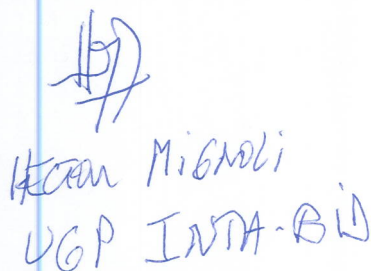 HECTOR MIGNOLI
UGP INTA-BID